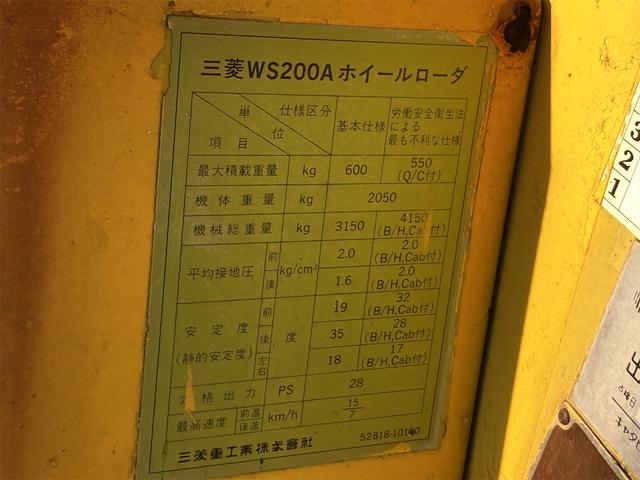 三菱WS200Aホイールローダ
単位 仕様区分 項目
基本仕様
労働安全衛生法
による
最も不利な仕様
最大積載重量 kg 600 550
(Q/C付)
機体重量 kg 2050
機械総重量 kg 3150 4150
(B/H,Cab付)
平均接地圧 kg/cm² 前 2.0 2.0
(B/H,Cab付)
後 1.6 2.0
(B/H,Cab付)
安定度
(静的安定度) 度 前 19 32
(B/H,Cab付)
後 35 28
(B/H,Cab付)
左右 18 17
(B/H,Cab付)
格出力 PS 28
最高速度 前進 km/h 15
後進 7
三菱重工業株式会社 52818-10100
3
2
1
出